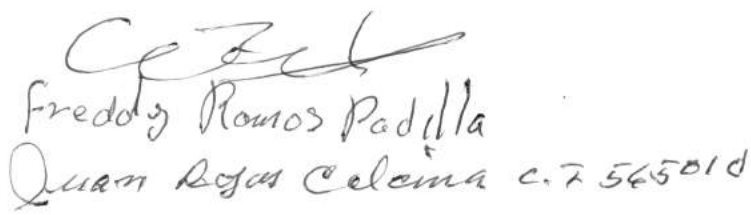 Freddy Ramos Padilla
Juan Rojas Colcina c.I 565010